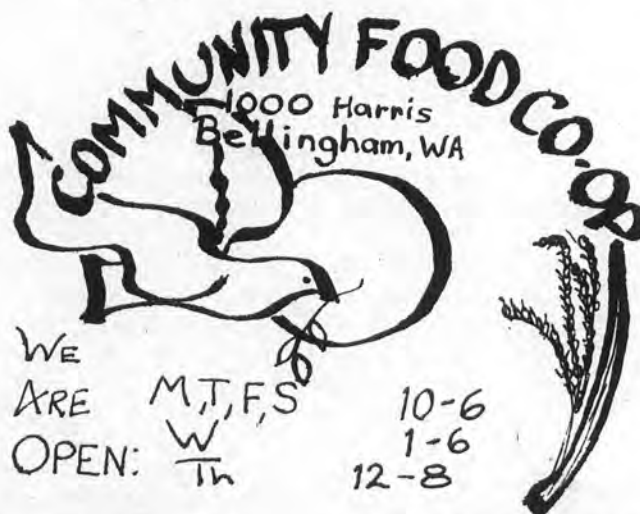 COMMUNITY FOOD CO-OP
1000 Harris
Bellingham, WA
WE
ARE M,T,F,S 10-6
OPEN: W 1-6
Th 12-8